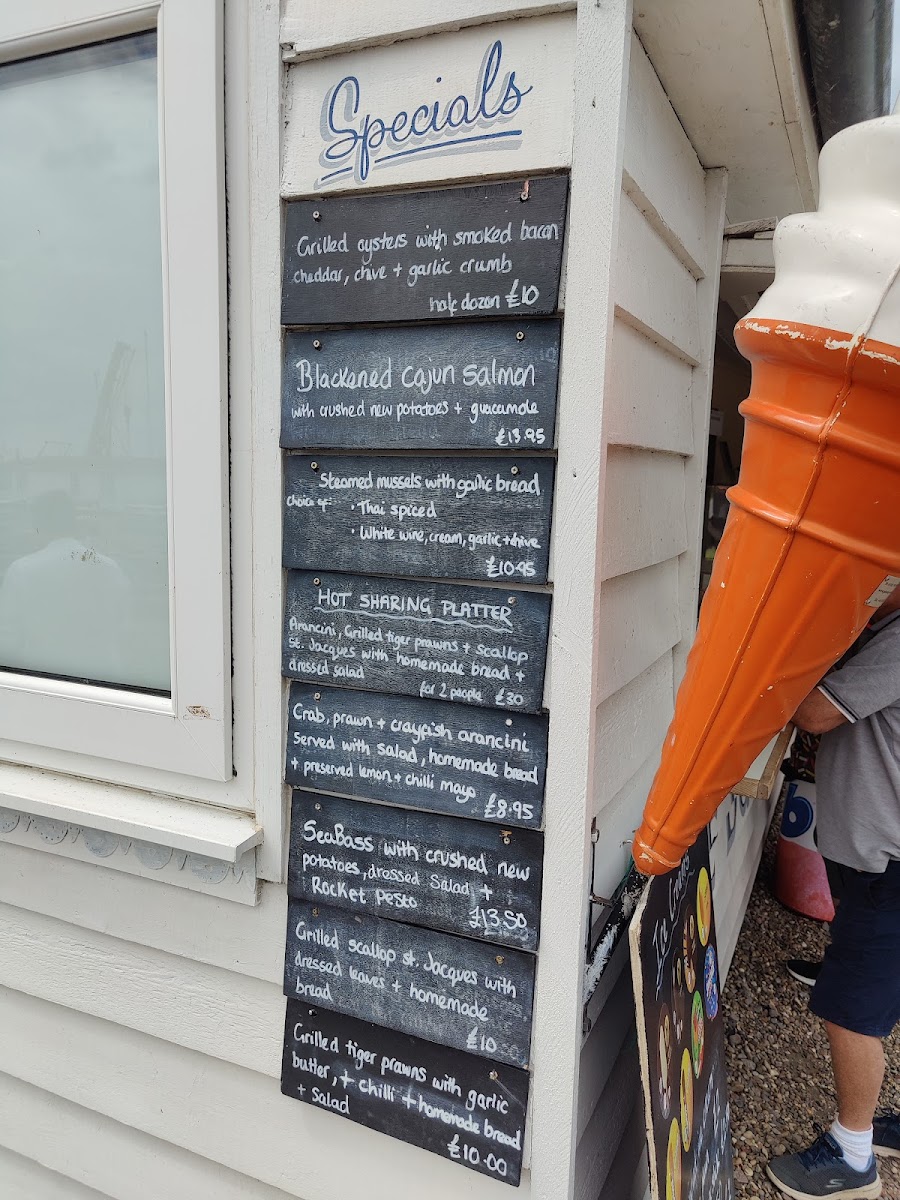 Specials
Grilled oysters with smoked bacon
cheddar, chive + garlic crumb
half dozen £10
Blackened cajun salmon
with crushed new potatoes + guacamole
£13.95
Steamed mussels with garlic bread
choice of • Thai spiced
• White wine, cream, garlic + chive
£10.95
HOT SHARING PLATTER
Arancini, Grilled tiger prawns + scallop
St. Jacques with homemade bread +
dressed salad
for 2 people £30
Crab, prawn + crayfish arancini
served with salad, homemade bread
+ preserved lemon + chilli mayo
£8.95
SeaBass with crushed new
potatoes, dressed salad +
Rocket Pesto
£13.50
Grilled scallop st. Jacques with
dressed leaves + homemade
bread
£10
Grilled tiger prawns with garlic
butter, + chilli + homemade bread
+ salad
£10.00
Ice Creams